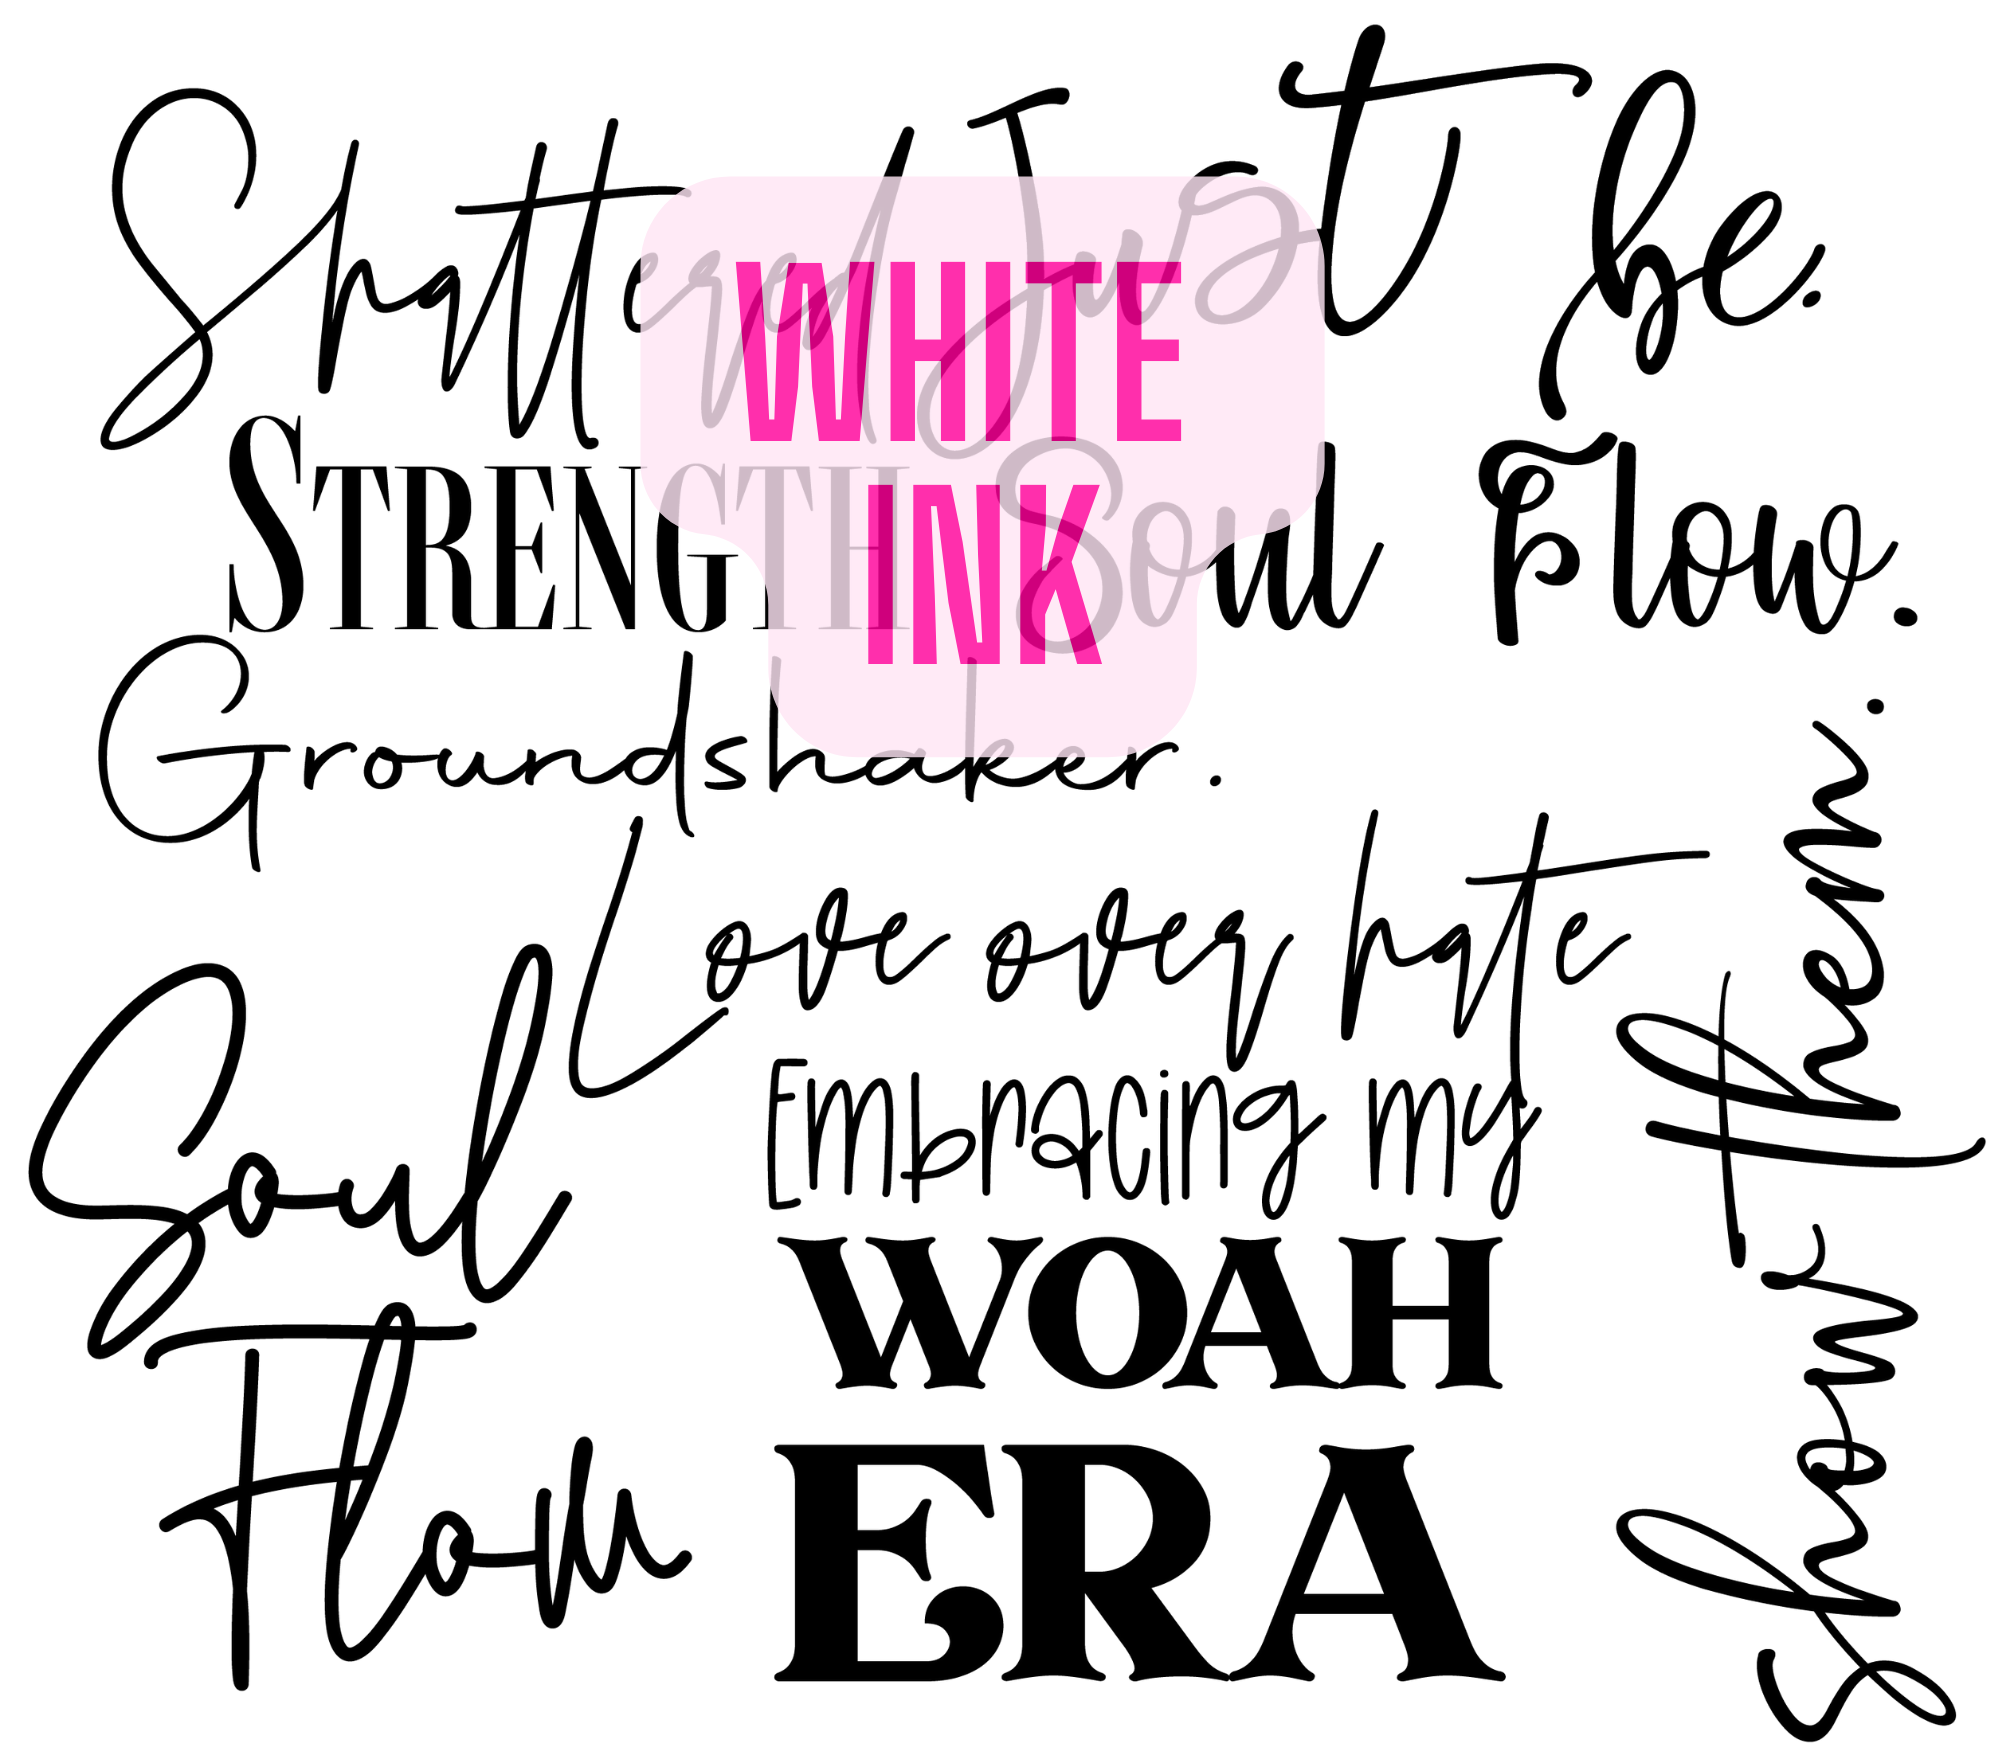 Shatterd
Just be.
WHITE
INK
STRENGTH
Soul Flow.
Groundshaker.
Love over hate
Soul
Flow
Embracing my
WOAH
ERA
Show them.